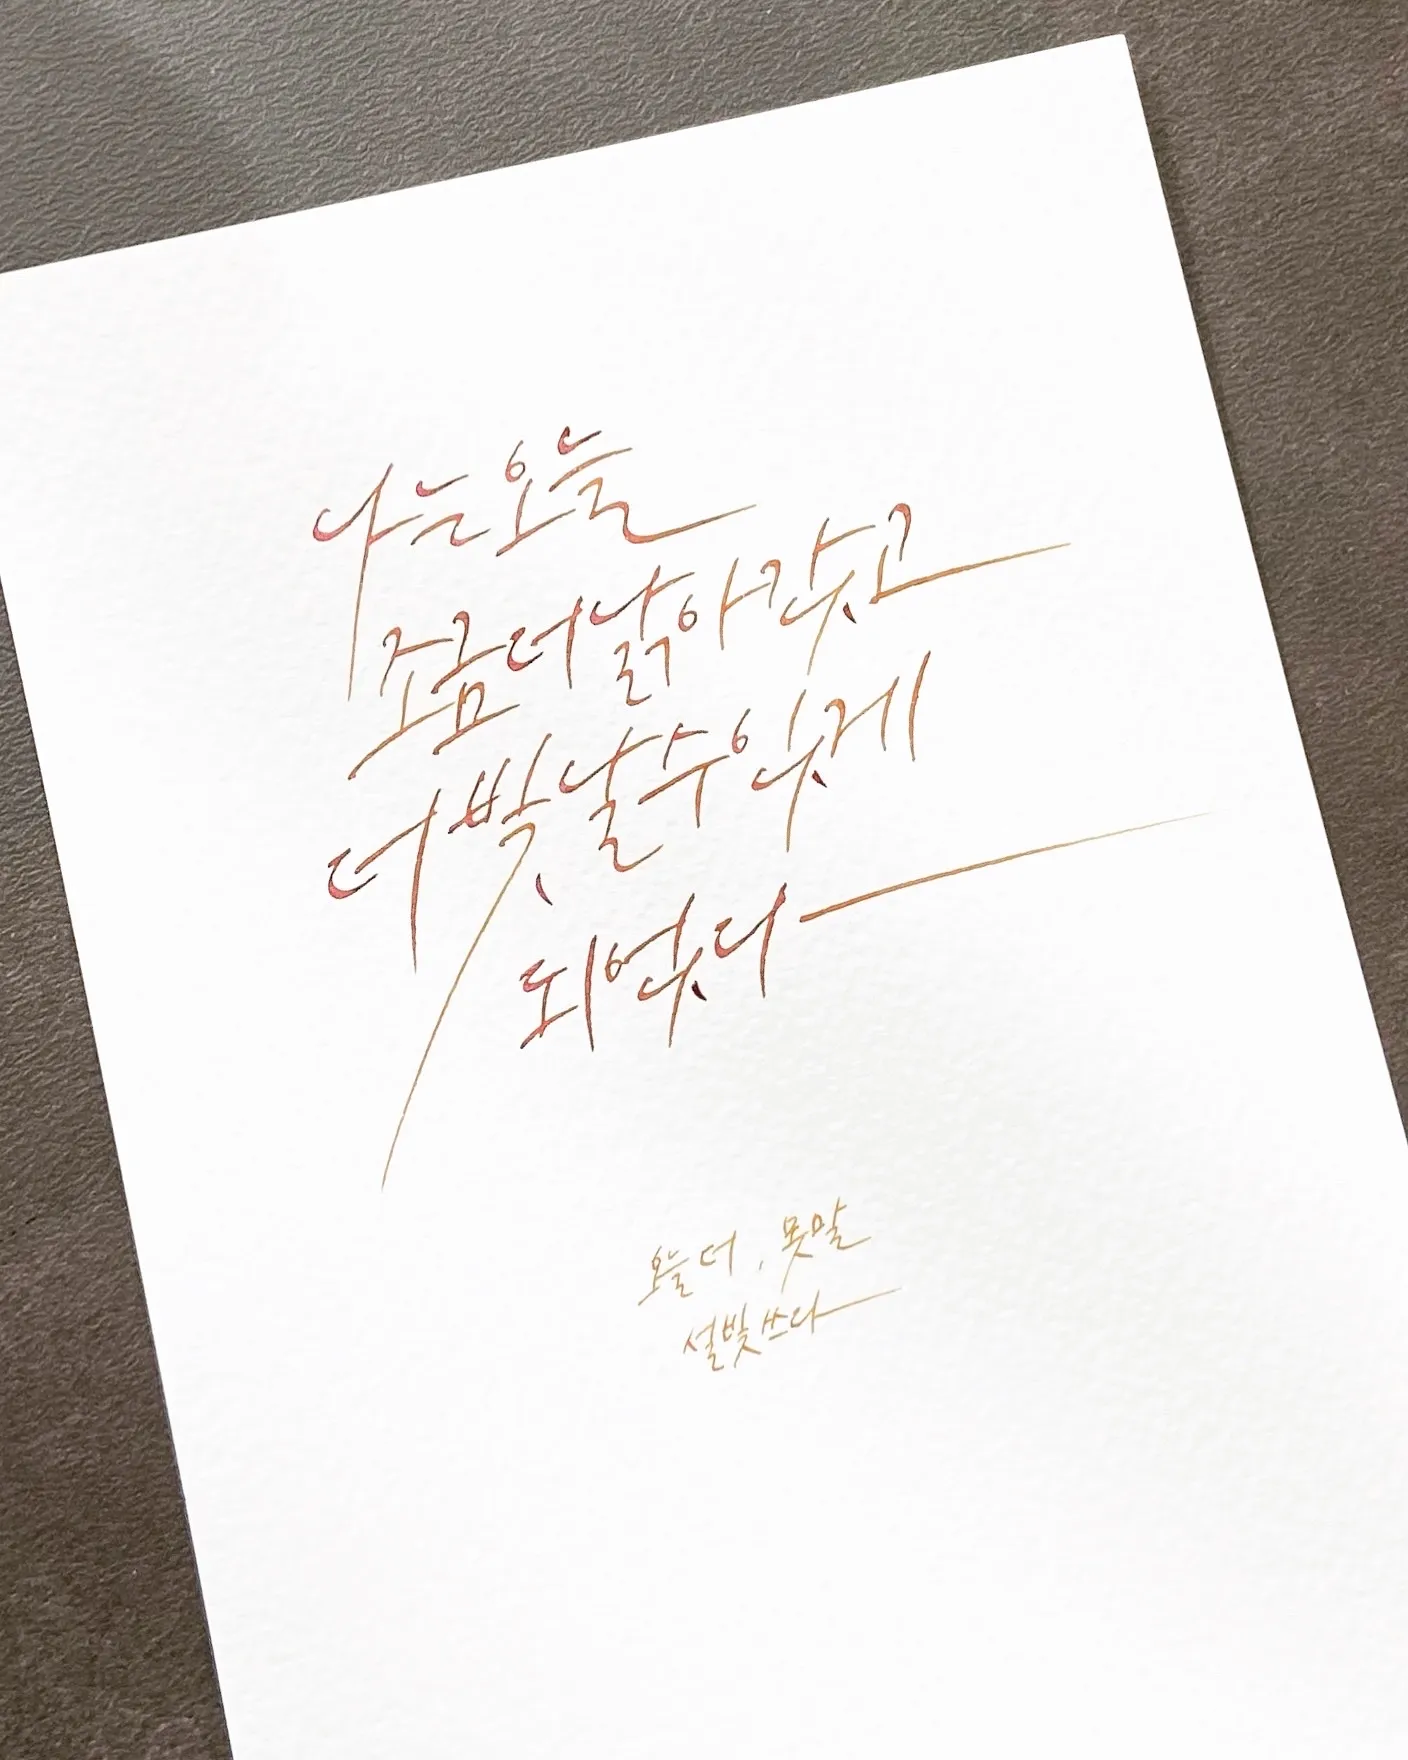 나는 오늘
조금 더 낡아 갔고
더 빛날 수 있게
되었다
오늘 더, 못말
설빛 쓰다